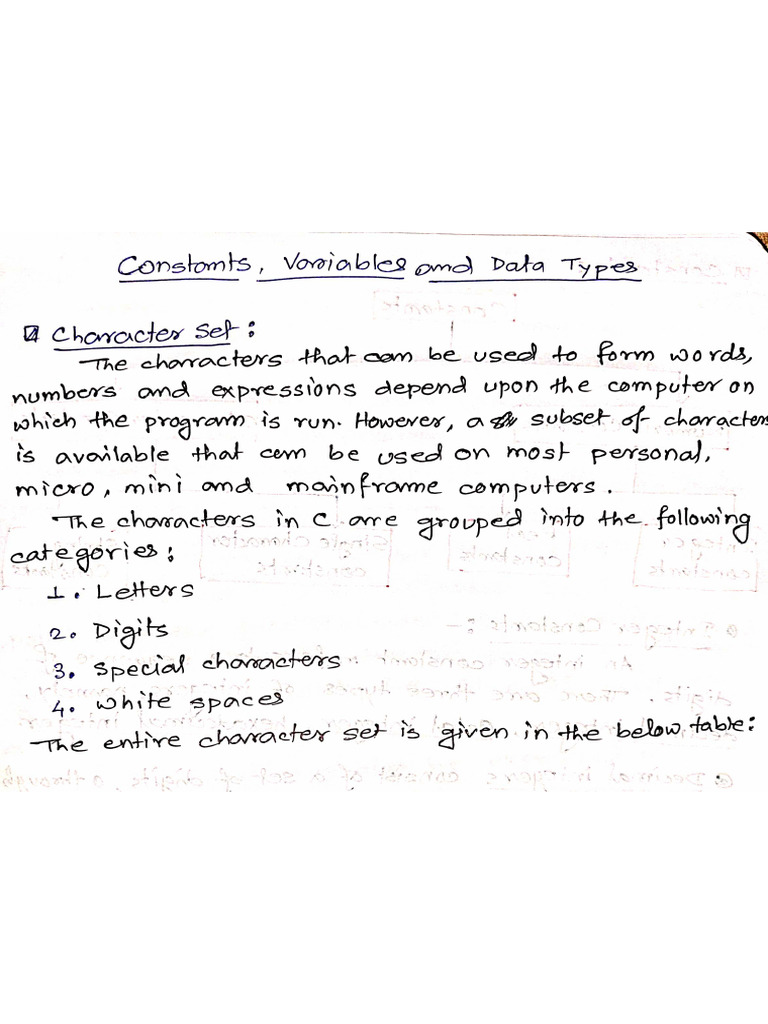 Constants, Variables and Data Types
Character Set :
The characters that can be used to form words,
numbers and expressions depend upon the computer on
which the program is run. However, a subset of characters
is available that can be used on most personal,
micro, mini and mainframe computers.
The characters in C are grouped into the following
categories :
1. Letters
2. Digits
3. Special characters
4. White spaces
The entire character set is given in the below table :